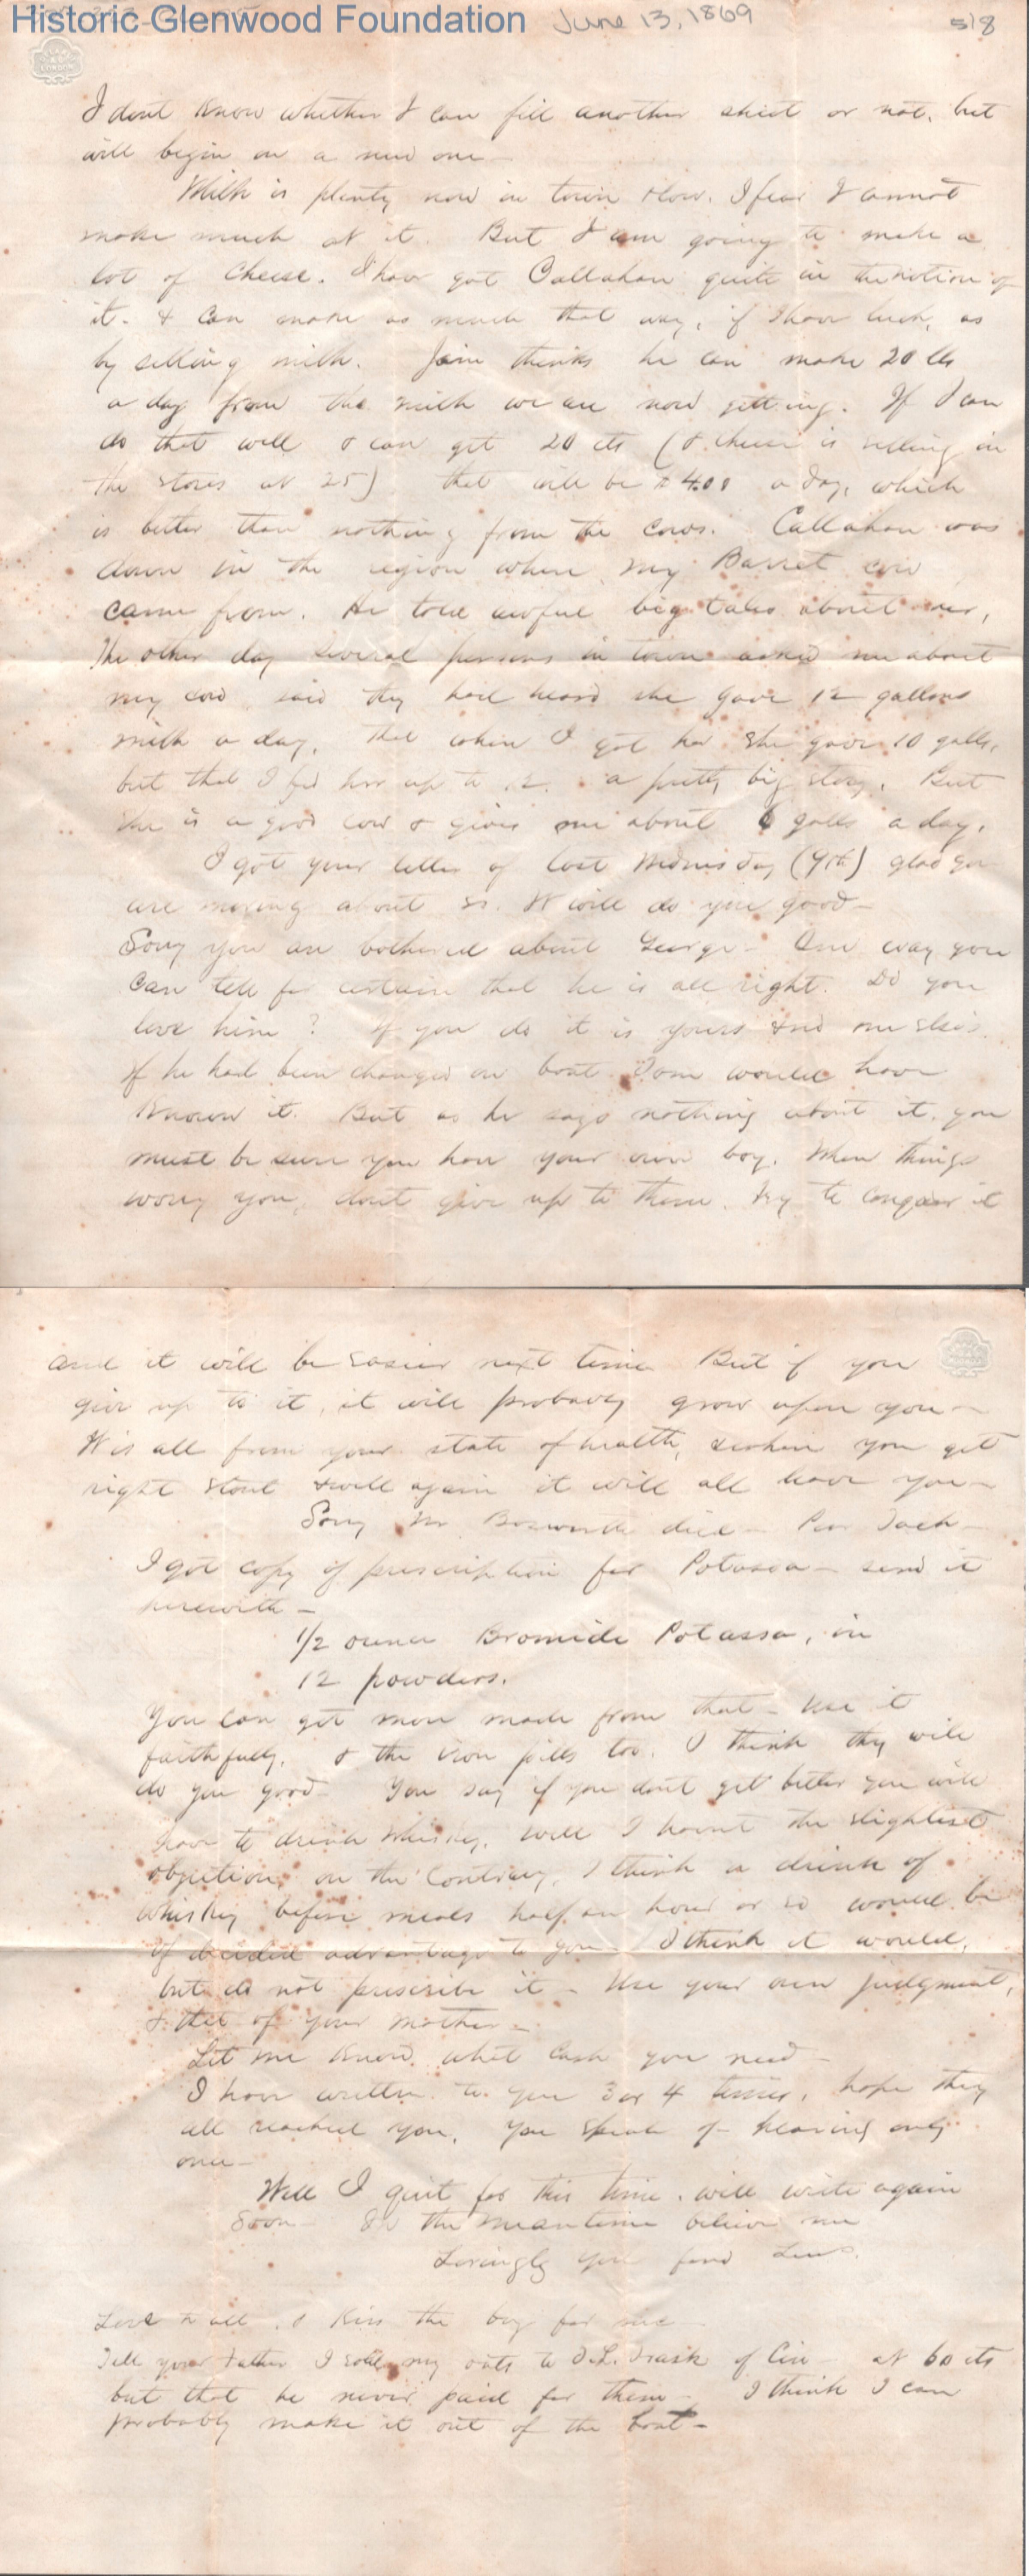 Historic Glenwood Foundation June 13, 1869 518
I dont know whether I can fill another sheet or not, but
will begin on a new one –
Milk is plenty now in town & low. I fear I cannot
make much at it. But I am going to make a
lot of cheese. I have got Callahan quite in the notion of
it. & can make as much that way, if I have luck, as
by selling milk. Jain thinks he can make 20 lbs
a day from the milk we are now getting. If I can
do that well & can get 20 cts (& cheese is selling in
the stores at 25) that will be $4.00 a day, which
is better than nothing from the cows. Callahan was
down in the region where my Barret cow
came from. He told awful big tales about her,
The other day several persons in town asked me about
my cow, said they had heard she gave 12 gallons
milk a day, that when I got her she gave 10 galls,
but that I fed her up to 12. a pretty big story. But
she is a good cow & gives me about 6 galls a day.
I got your letter of last Wednesday (9th) glad you
are moving about so. It will do you good –
Sorry you are bothered about George – One way you
can tell for certain that he is all right. Do you
love him? If you do it is yours and no one else's.
If he had been changed on boat Dom would have
known it. But as he says nothing about it, you
must be sure you have your own boy. When things
worry you, dont give up to them. try to conquer it
and it will be easier next time But if you
give up to it, it will probably grow upon you –
It is all from your state of health, & when you get
right stout & well again it will all leave you –
Sorry Mr Bosworth died – Poor Jack –
I got copy of prescription for Potassa – send it
herewith –
1/2 ounce Bromide Potassa, in
12 powders.
You can get more made from that – Use it
faithfully, & the iron pills too. I think they will
do you good – You say if you dont get better you will
have to drink whiskey, well I havnt the slightest
objection, on the contrary, I think a drink of
whiskey before meals half an hour or so would be
of decided advantage to you – I think it would,
but do not prescribe it – Use your own judgment,
& that of your mother –
Let me know what cash you need –
I have written to you 3 or 4 times, hope they
all reached you, you speak of hearing only
one –
Well I quit for this time. will write again
soon – In the meantime believe me
Lovingly your fond Luis.
Love to all, & kiss the boy for me
Tell your Father I sold my oats to D.L. Trask of Cin – at 60 cts
but that he never paid for them – I think I can
probably make it out of the boat –